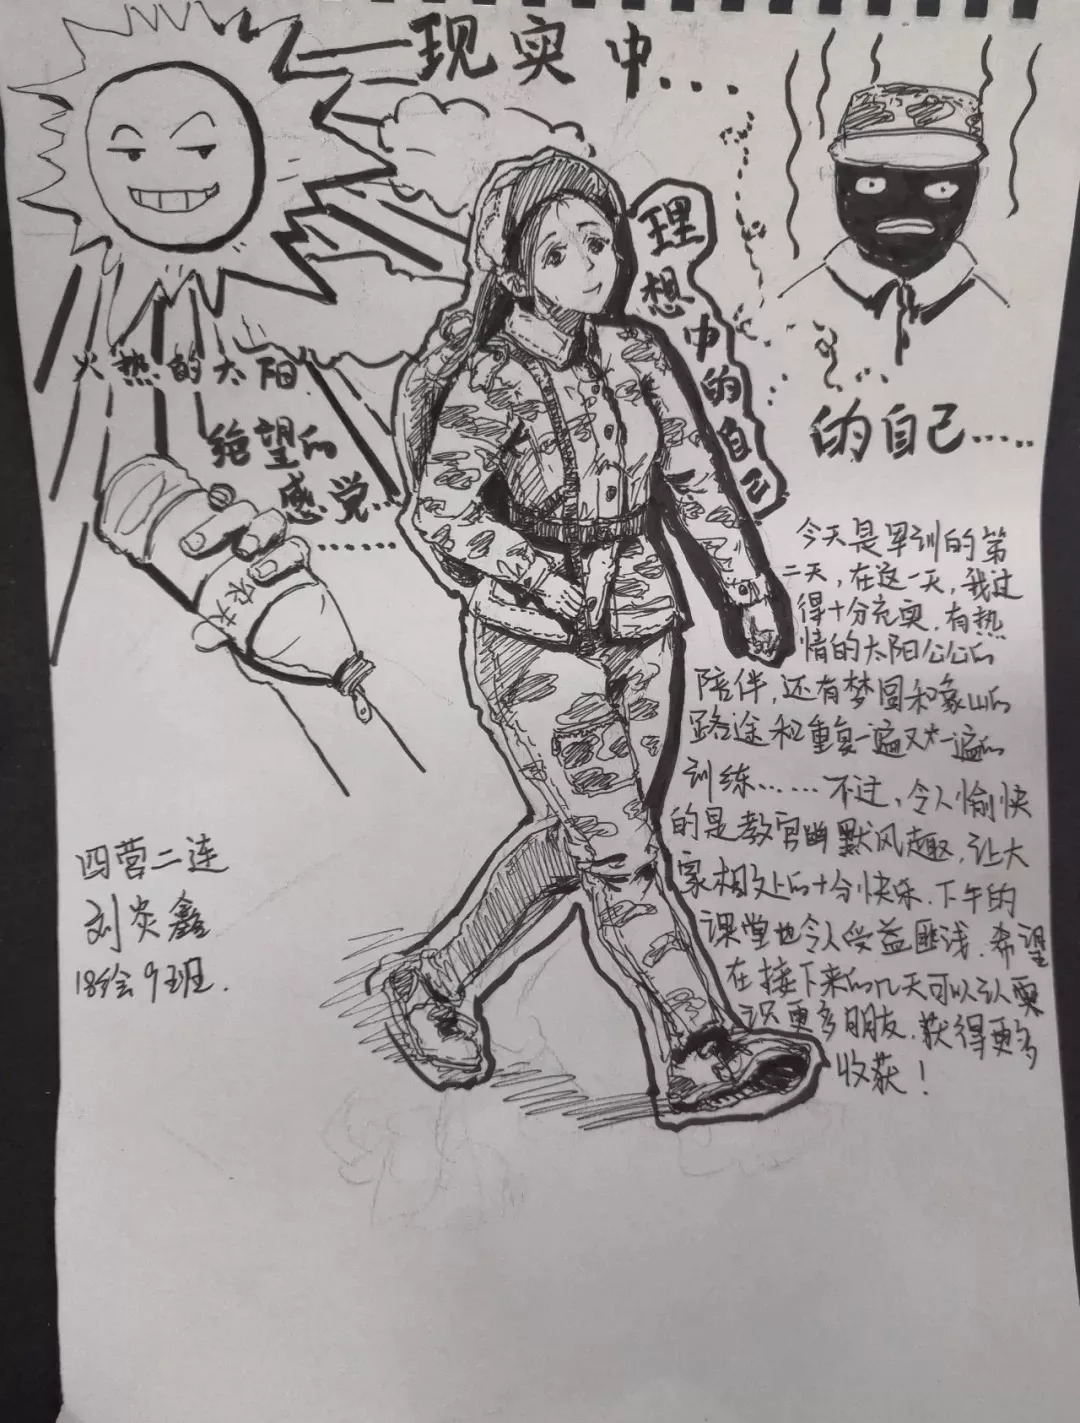 现实中...
的自己.....
理想中的自己
火热的太阳
绝望的
感觉...
......
农夫
今天是军训的第
二天，在这一天，我过
得十分充实，有热
情的太阳公公的
陪伴，还有梦圆和象山的
路途和重复一遍又一遍的
训练……不过，令人愉快
的是教官幽默风趣，让大
家相处的十分快乐，下午的
课堂也令人受益匪浅，希望
在接下来的几天可以认
识更多朋友，获得更多
收获！
四营二连
刘炎鑫
18绘9班.